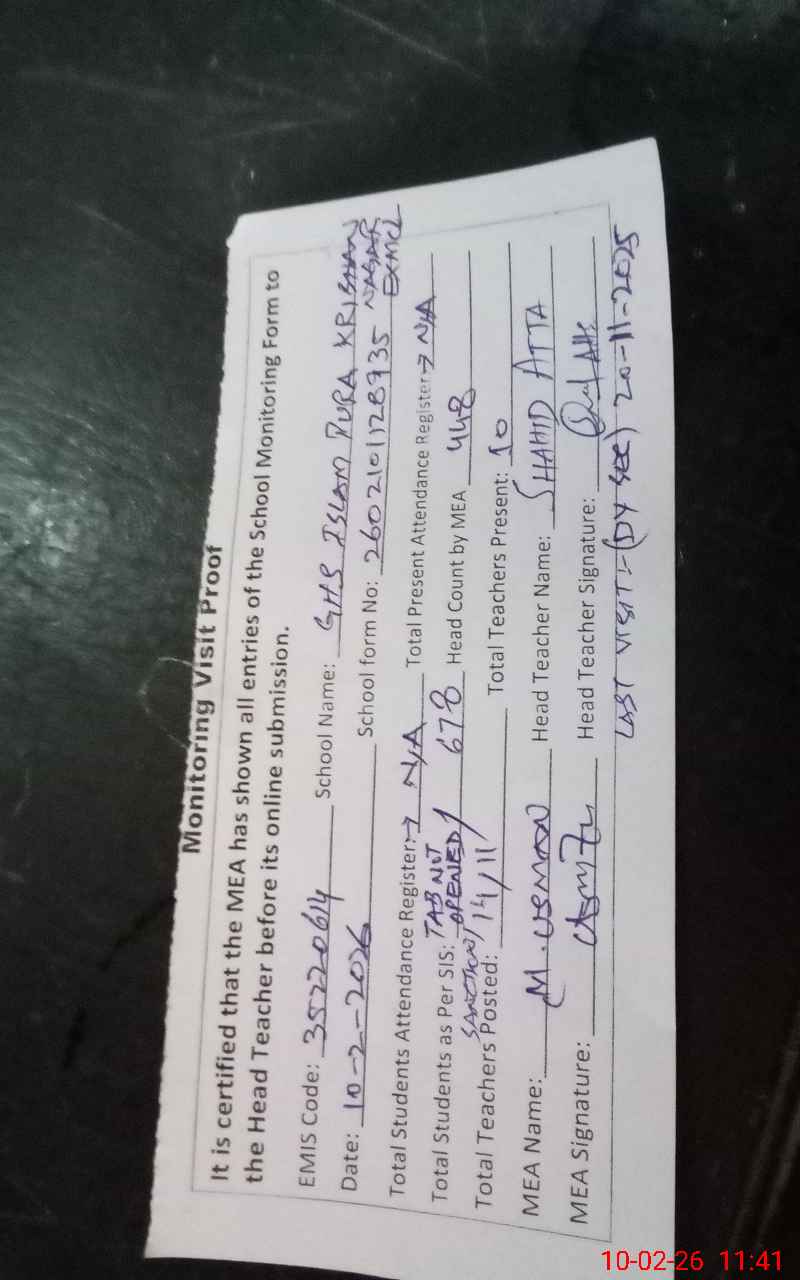 Monitoring Visit Proof
It is certified that the MEA has shown all entries of the School Monitoring Form to
the Head Teacher before its online submission.
EMIS Code: 35220614 School Name: GHS ISLAM PURA KRISHAN NAGAR
Date: 10-2-2026 School form No: 2602101128935
Total Students Attendance Register:→ N/A Total Present Attendance Register→ N/A
Total Students as Per SIS: TAB NOT OPENED/ 678 Head Count by MEA 448
Total Teachers Posted: 14/11/ Total Teachers Present: 10
MEA Name: M. USMAN Head Teacher Name: SHAHID ATTA
MEA Signature: Head Teacher Signature:
LAST VISIT:- (DY SEC) 20-11-2025
10-02-26 11:41